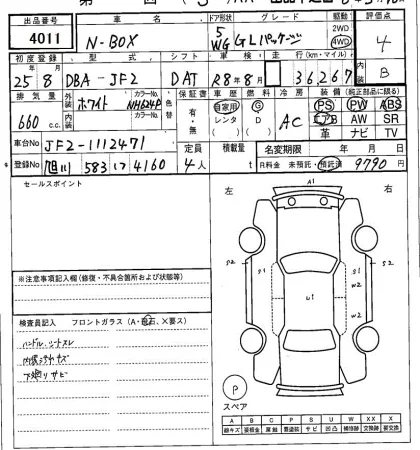 出品番号 車名 ドア形状 グレード 駆動 評価点
4011 N-BOX 5 WG GLパッケージ 2WD 4WD 4
初度登録 型式 シフト 車検 走行 (km・マイル)
25年8月 DBA-JF2 DAT 28年8月 36267 B
排気量 外装 カラーNo. 色替 保証書 車歴 燃料 冷房 装備(純正部品に限る)
660 c.c. ホワイト NH624P 有・無 自家用 レンタ G D AC PS PW ABS
内装 カラーNo. エアB AW SR
革 ナビ TV
車台No JF2-1112471 定員 積載量 名変期限 年 月 日
登録No 旭川 583 4160 4人 t R料金 未預託・預託済 9790円
セールスポイント 左 右
A1
S2 S1 S1 S2
W2
U1
W2
※注意事項記入欄(修復・不具合箇所および状態等)
検査員記入 フロントガラス(A・飛石、X要ス)
ハンドル、シートスレ
内張キズ
下廻りサビ
P
スペア
A B C P S U W X XX
線キズ 要板金 腐蝕 要塗装 サビ 凹凸 補修跡 要交換 交換済